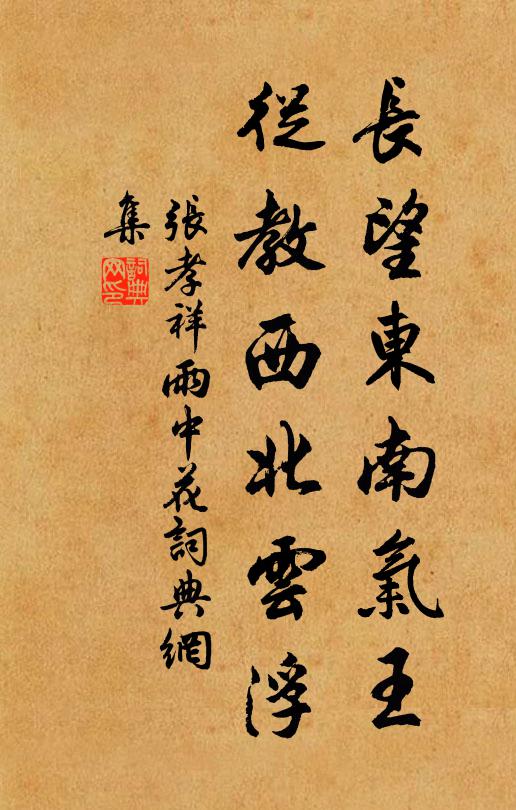 長望東南氣王
從教西北雲浮
張孝祥雨中花詞典網
集
詞典网印